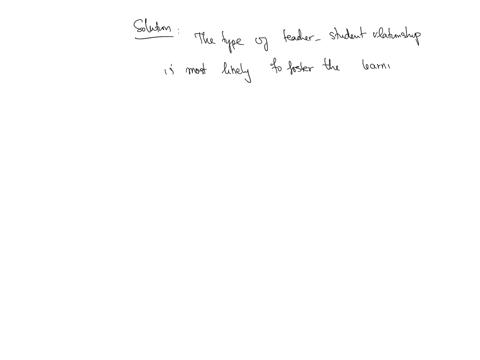 Solution: The type of teacher-student relationship
is most likely to foster the learni